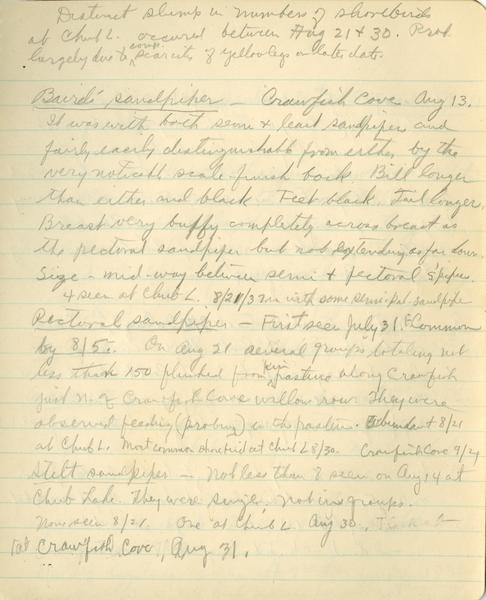 Distinct slump in numbers of shorebirds
at Chub L. occured between Aug 21 & 30. Prob.
largely due to comp. scarcity of yellowlegs on later date.
Baird's sandpiper – Crawfish Cove Aug 13.
It was with both semi & least sandpiper and
fairly easily distinguishable from either by the
very noticable scale finish back. Bill longer
than either and black. Feet black. Tail longer.
Breast very buffy completely across breast as
the pectoral sandpiper but not extending as far down.
Size – mid-way between semi & pectoral
4 seen at Chub L. 8/21/37 with some semi-pal. sandpipe
Pectoral sandpiper – First seen July 31. Common
by 8/5. On Aug 21 several groups totaling not
less than 150 flushed from pasture along Crawfish
just N. of Crawfish Cove willow row. They were
observed feeding (probing) in the pasture. Abundant 8/21
at Chub L. Most common shorebird at Chub L 8/30. Crawfish Cove 9/24
Stilt sandpiper – Not less than 8 seen on Aug 14 at
Chub Lake. They were single, not in groups.
None seen 8/21. One at Chub L Aug 30.
at Crawfish Cove, Aug 31.